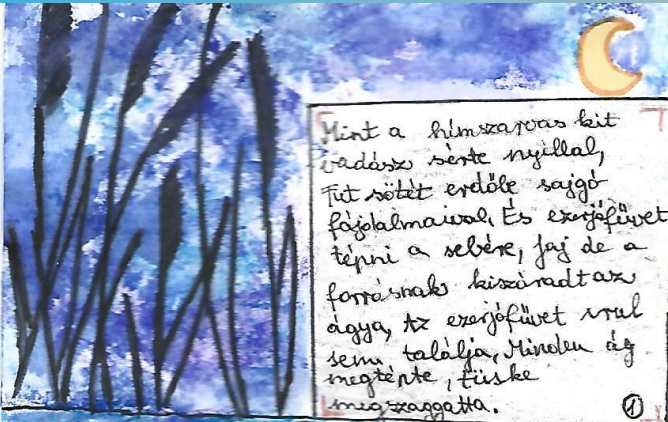 Mint a hímszarvas kit
vadász sérte nyillal,
Fut sötét erdőbe sajgó
fájdalmaival, És ezerjófüvet
tépni a sebére, Jaj de a
forrásnak kiszáradt az
ágya, Az ezerjófüvet
sem találja, Minden ág
megtépte, tüske
megszaggatta.
1